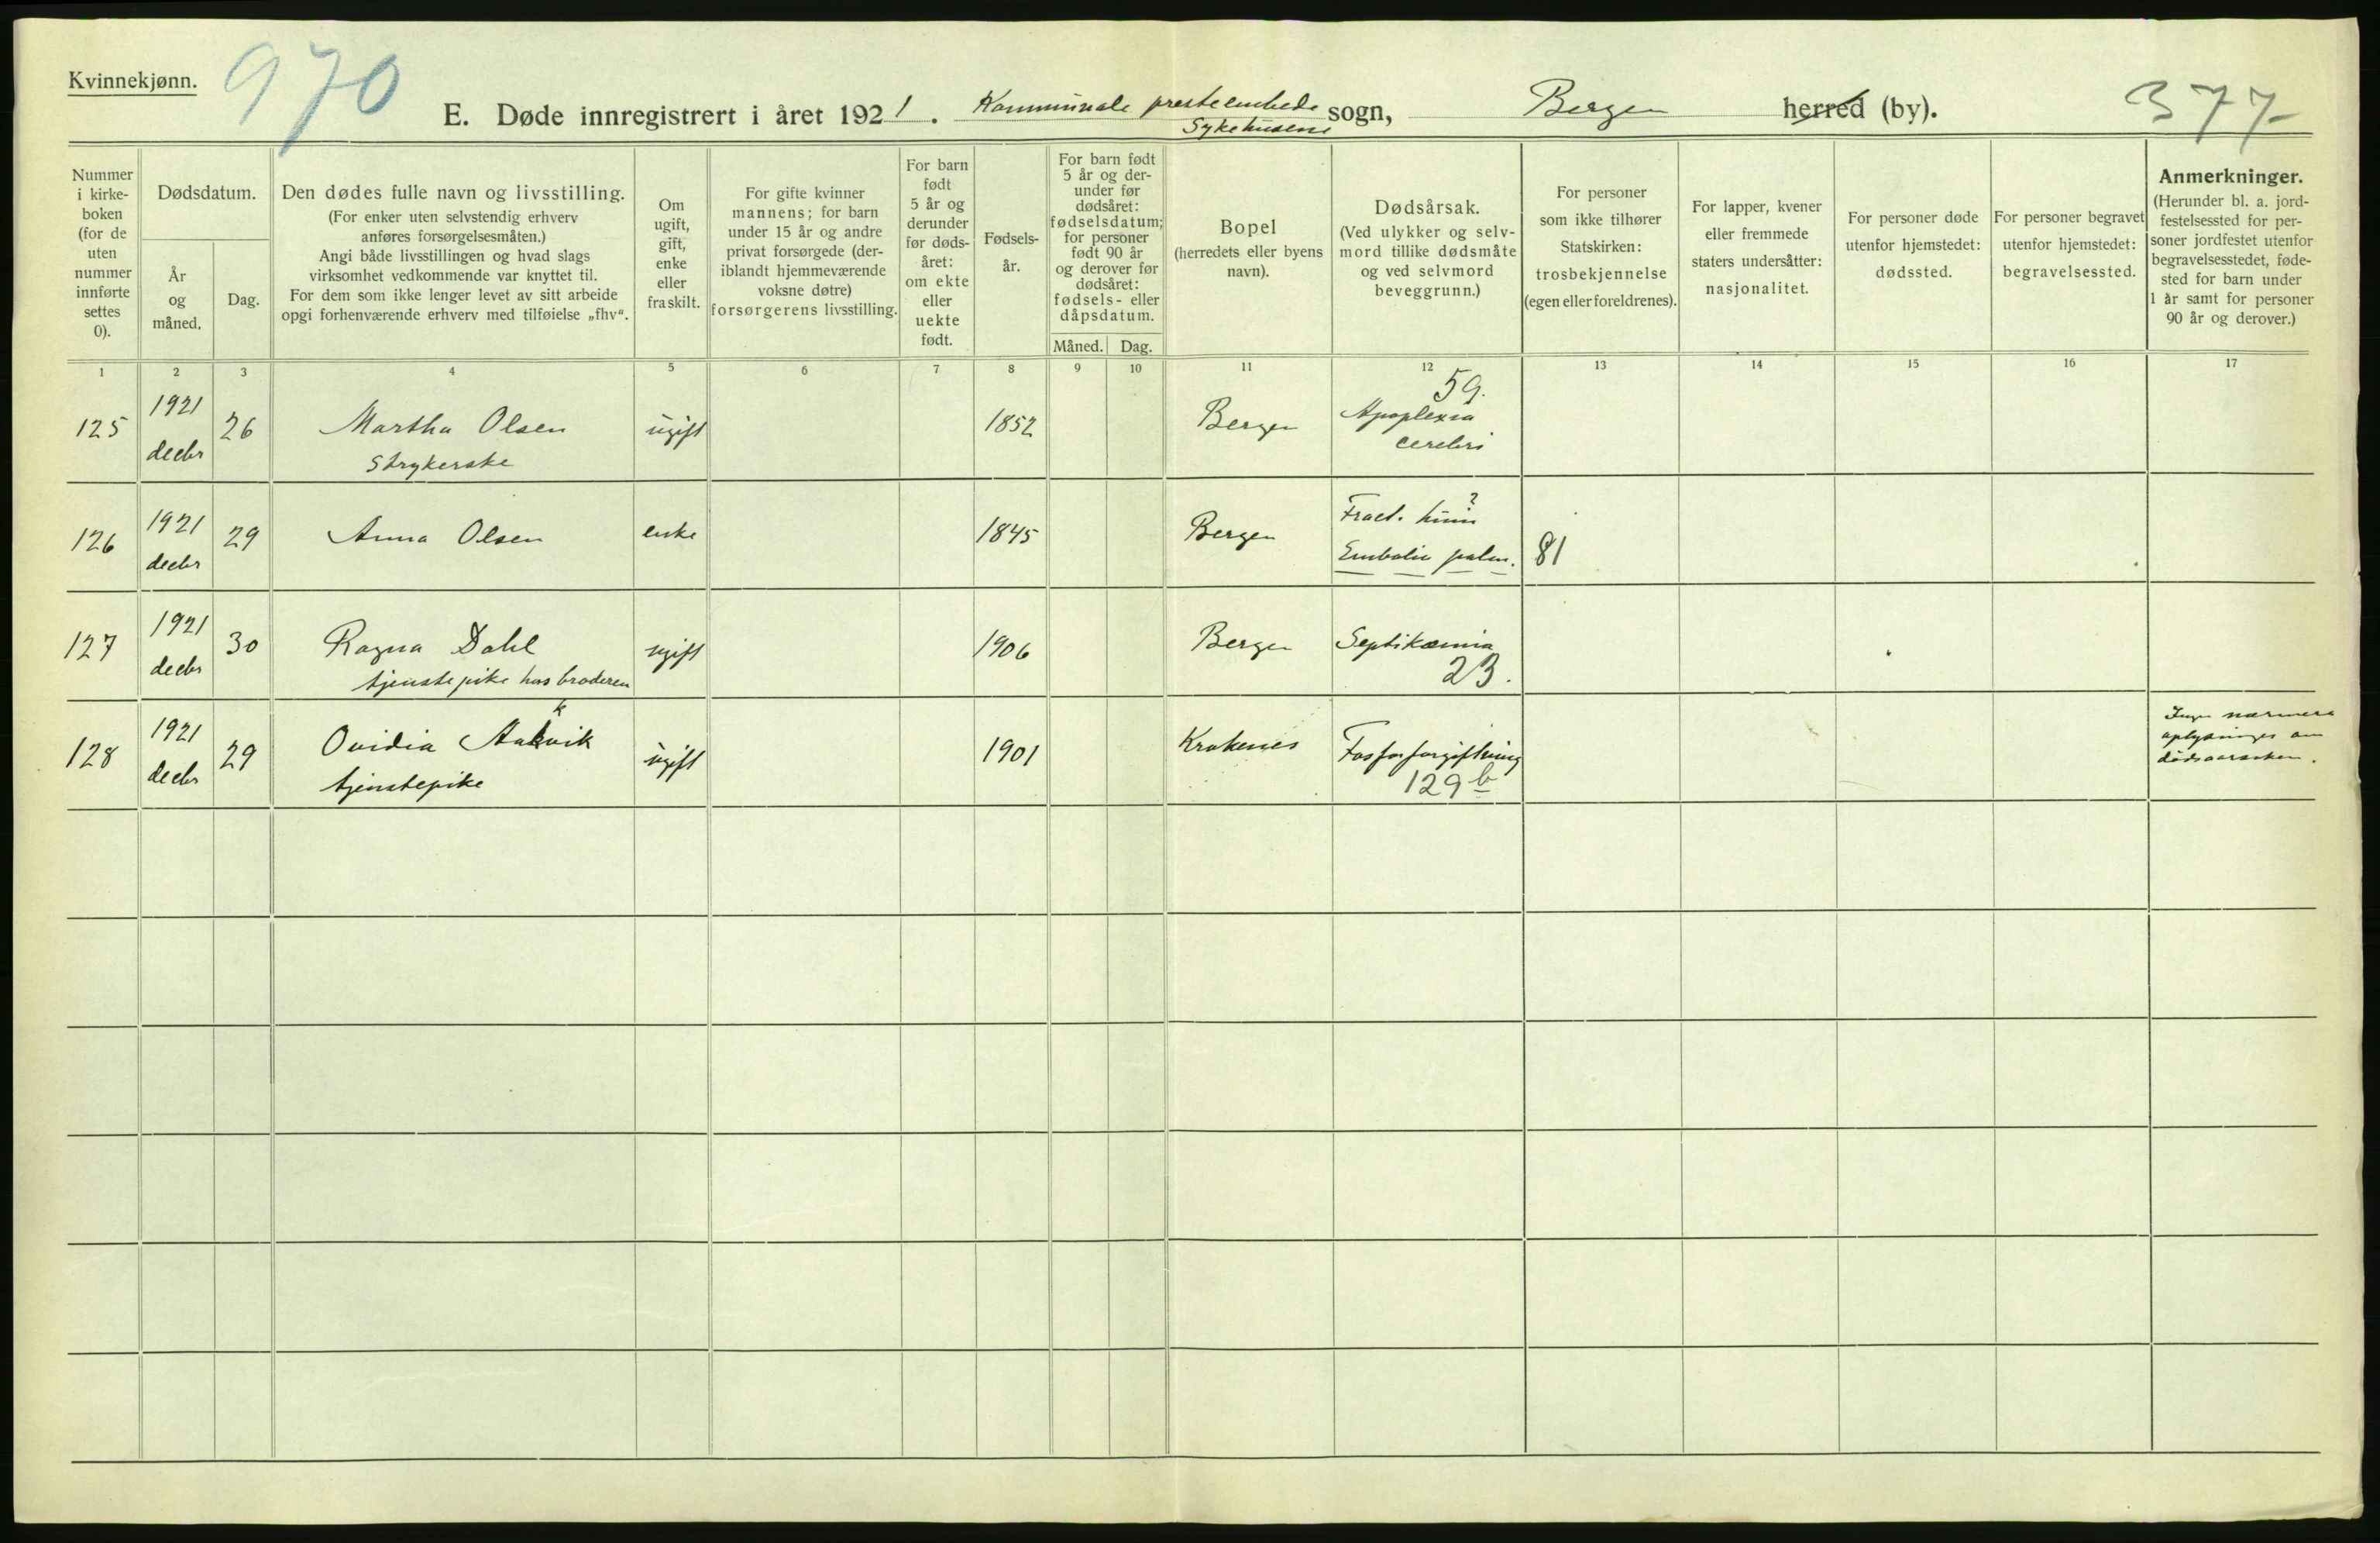 Kvinnekjønn.
970
E. Døde innregistrert i året 1921. Kommunale presteembede sogn, Bergen herred (by).
Sykehusene
377-
Nummer
i kirke-
boken
(for de
uten
nummer
innførte
settes
0).
Dødsdatum.
År
og
måned.
Dag.
Den dødes fulle navn og livsstilling.
(For enker uten selvstendig erhverv
anføres forsørgelsesmåten.)
Angi både livsstillingen og hvad slags
virksomhet vedkommende var knyttet til.
For dem som ikke lenger levet av sitt arbeide
opgi forhenværende erhverv med tilføielse „fhv“.
Om
ugift,
gift,
enke
eller
fraskilt.
For gifte kvinner
mannens; for barn
under 15 år og andre
privat forsørgede (der-
iblandt hjemmeværende
voksne døtre)
forsørgerens livsstilling.
For barn
født
5 år og
derunder
før døds-
året:
om ekte
eller
uekte
født.
Fødsels-
år.
For barn født
5 år og der-
under før
dødsåret:
fødselsdatum;
for personer
født 90 år
og derover før
dødsåret:
fødsels- eller
dåpsdatum.
Måned. Dag.
Bopel
(herredets eller byens
navn).
Dødsårsak.
(Ved ulykker og selv-
mord tillike dødsmåte
og ved selvmord
beveggrunn.)
For personer
som ikke tilhører
Statskirken:
trosbekjennelse
(egen eller foreldrenes).
For lapper, kvener
eller fremmede
staters undersåtter:
nasjonalitet.
For personer døde
utenfor hjemstedet:
dødssted.
For personer begravet
utenfor hjemstedet:
begravelsessted.
Anmerkninger.
(Herunder bl. a. jord-
festelsessted for per-
soner jordfestet utenfor
begravelsesstedet, føde-
sted for barn under
1 år samt for personer
90 år og derover.)
1 2 3 4 5 6 7 8 9 10 11 12 13 14 15 16 17
125 1921 decbr 26 Martha Olsen ugift 1852 Bergen 59. Apoplexia
strykerske cerebri
126 1921 decbr 29 Anna Olsen enke 1845 Bergen Fract. ?
Embolie pulm. 81
127 1921 decbr 30 Ragna Dahl ugift 1906 Bergen Septikæmia
tjenstepike hos broderen 23.
k
128 1921 decbr 29 Ovidia Aakvik ugift 1901 Krokenes Fosforforgiftning
tjenstepike 129 b
Ingen nærmere
oplysninger om
dødsaarsaken.